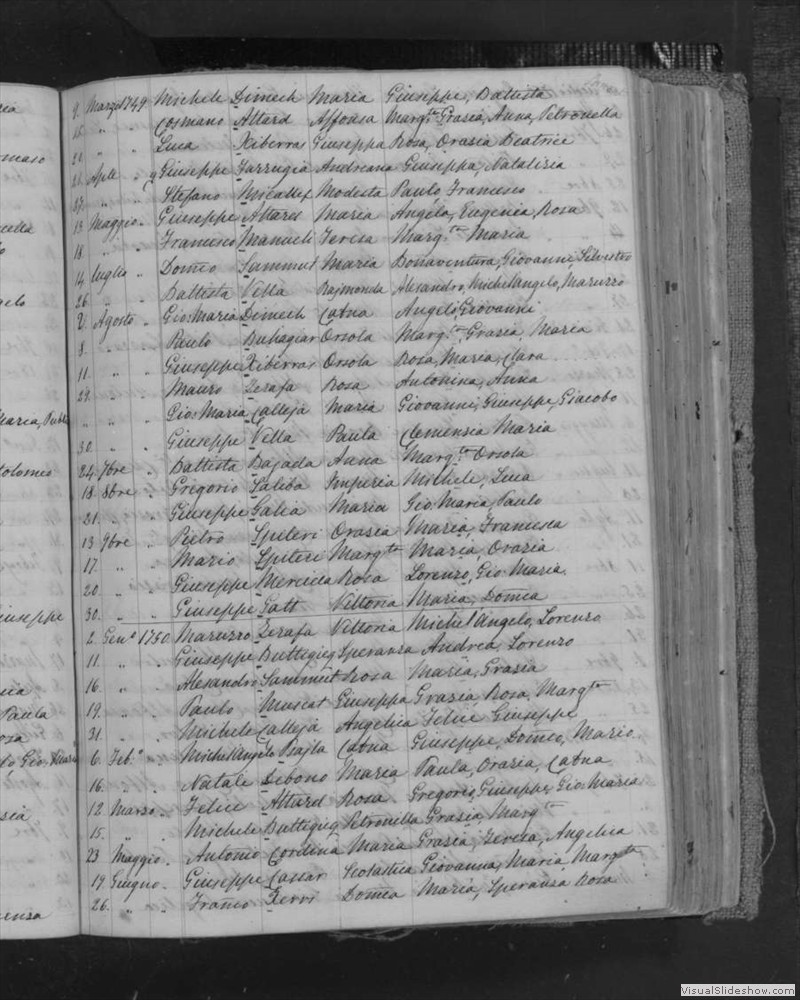 9. Marzo 1749 Michele Dimech Maria Giuseppe, Battista
15. " " Cosmano Attard Affonsa Margta Grasia, Anna Petronella
20. " " Luca Xiberras Giuseppa Rosa, Orasia Beatrice
Aple " Giuseppe Farrugia Andreana Giuseppa, Natalisia
27. " " Stefano Micallef Modesta Paulo Francesco
13 Maggio " Giuseppe Attard Maria Angelo, Eugenia, Rosa
18 " " Francesco Manueli Teresa Margta Maria
14 luglio " Domco Sammut Maria Bonaventura, Giovanni, Silvestro
26 " " Battista Vella Rajmonda Alesandro, Michel'angelo, Maruzzo
2. Agosto " Gio: Maria Dimech Catna Angelo, Giovanni
8. " " Paulo Buhagiar Orsola Margta Grasia, Maria
11. " " Giuseppe Xiberras Orsola Rosa, Maria, Clara
29. " " Mauro Zerafa Rosa Antonina, Anna
" " " Gio: Maria Calleja Maria Giovanni, Giuseppe, Giacobo
30. " " Giuseppe Vella Paula Clemensia Maria
24. 7bre " Battista Bajada Anna Margta Orsola
18. 8bre " Gregorio Saliba Imperia Michele, Luca
21. " " Giuseppe Galia Maria Gio: Maria, Paulo
13 9bre " Pietro Spiteri Orasia Maria, Francesca
17. " " Mario Spiteri Margta Maria, Orasia
20. " " Giuseppe Mercieca Rosa Lorenzo, Gio: Maria
30. " " Giuseppe Gatt Vittoria Maria, Domca
2. Geno 1750 Maruzzo Zerafa Vittoria Michel'Angelo, Lorenzo
11. " " Giuseppe Buttigieg Speransa Andrea, Lorenzo
16. " " Alesandro Sammut Rosa Maria, Grasia
19. " " Paulo Muscat Giuseppa Grasia, Rosa, Margta
31. " " Michele Calleja Angelica Felice Giuseppe
6. Febo " Michel'Angelo Psajla Catna Giuseppe, Domco, Mario
16. " " Natale Debono Maria Paula, Orasia, Catna
12 Marzo " Felice Attard Rosa Gregorio, Giuseppe, Gio: Maria
15. " " Michele Buttigieg Petronella Grasia, Margta
23 Maggio " Antonio Cordina Maria Grasia, Teresa, Angelica
19 Giugno " Giuseppe Cassar Scolastica Giovanna, Maria, Margta
26. " " Franco Xerri Domca Maria, Speransa Rosa
VisualSlideshow.com